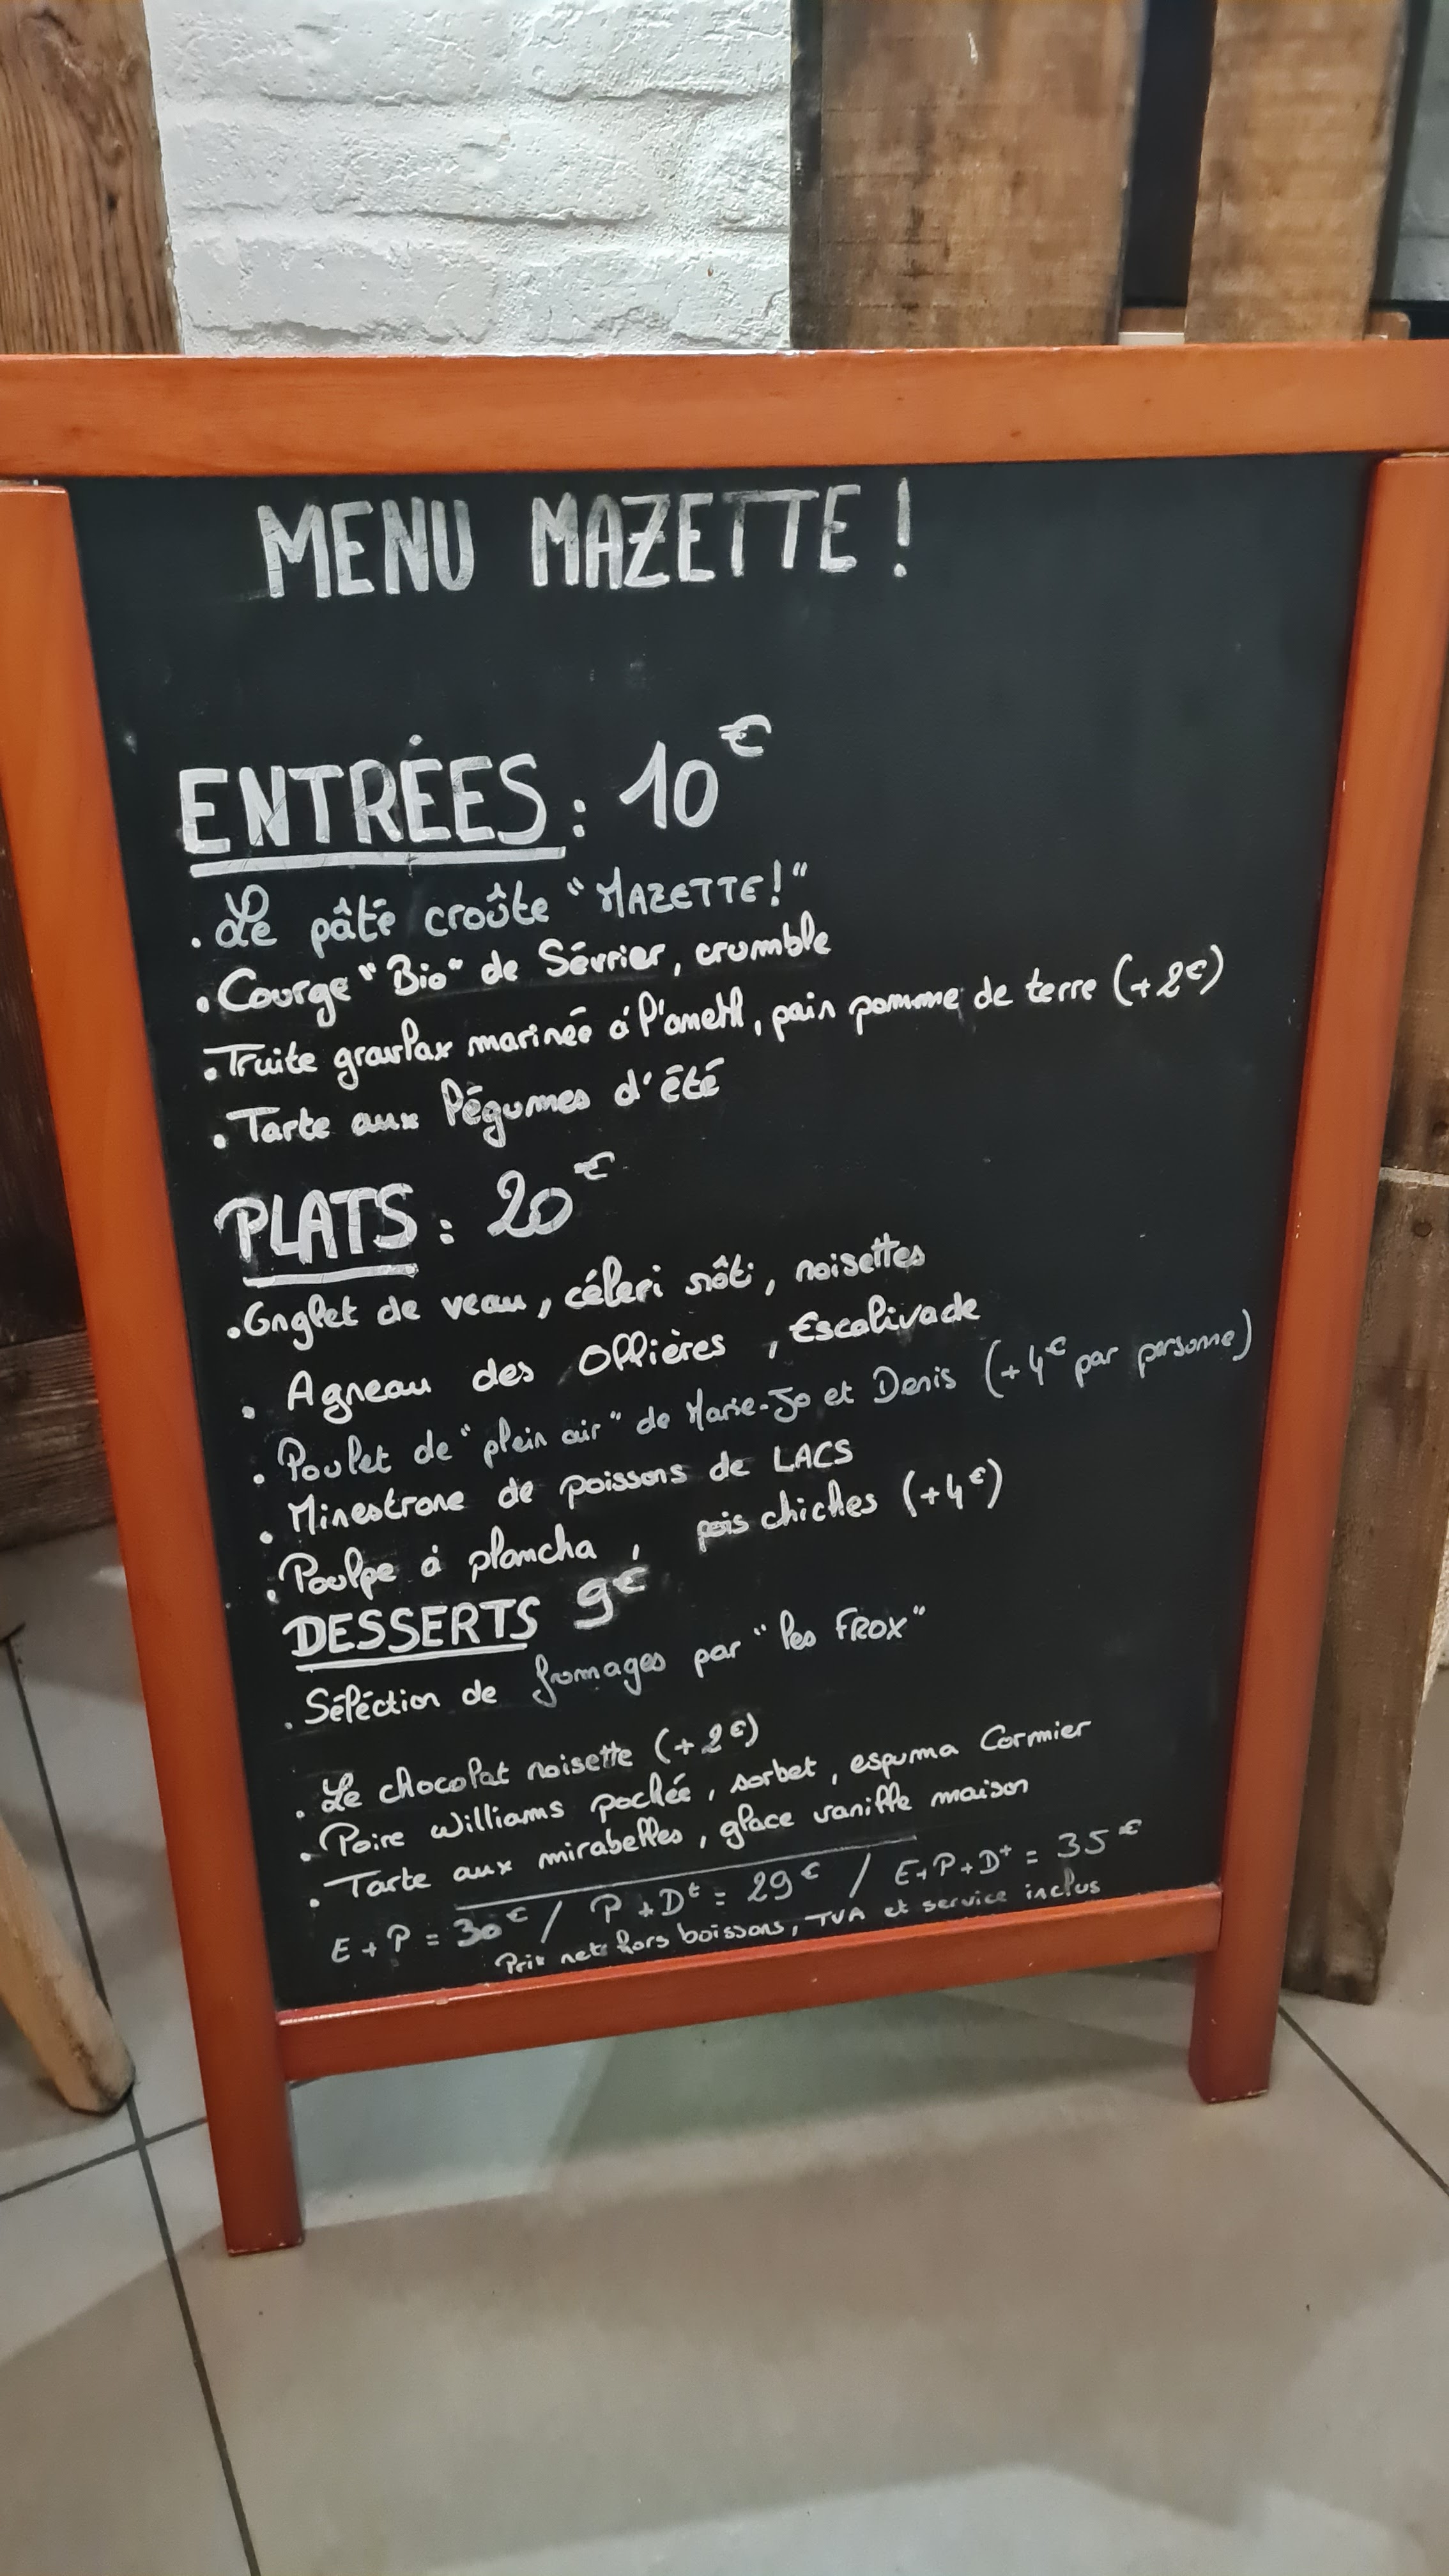 MENU MAZETTE !
ENTRÉES : 10€
. Le pâté croûte "MAZETTE!"
. Courge "Bio" de Sévrier, crumble
. Truite gravlax marinée à l'aneth, pain pomme de terre (+2€)
. Tarte aux légumes d'été
PLATS : 20€
. Onglet de veau, céleri rôti, noisettes
. Agneau des Ollières, Escalivade
. Poulet de "plein air" de Marie-Jo et Denis (+4€ par personne)
. Minestrone de poissons de LACS
. Poulpe à plancha, pois chiches (+4€)
DESSERTS 9€
. Séléction de fromages par "les FROX"
. Le chocolat noisette (+2€)
. Poire Williams pochée, sorbet, espuma Cormier
. Tarte aux mirabelles, glace vanille maison
E+P = 30€ / P+Dt = 29€ / E+P+Dt = 35€
Prix nets hors boissons, TVA et service inclus